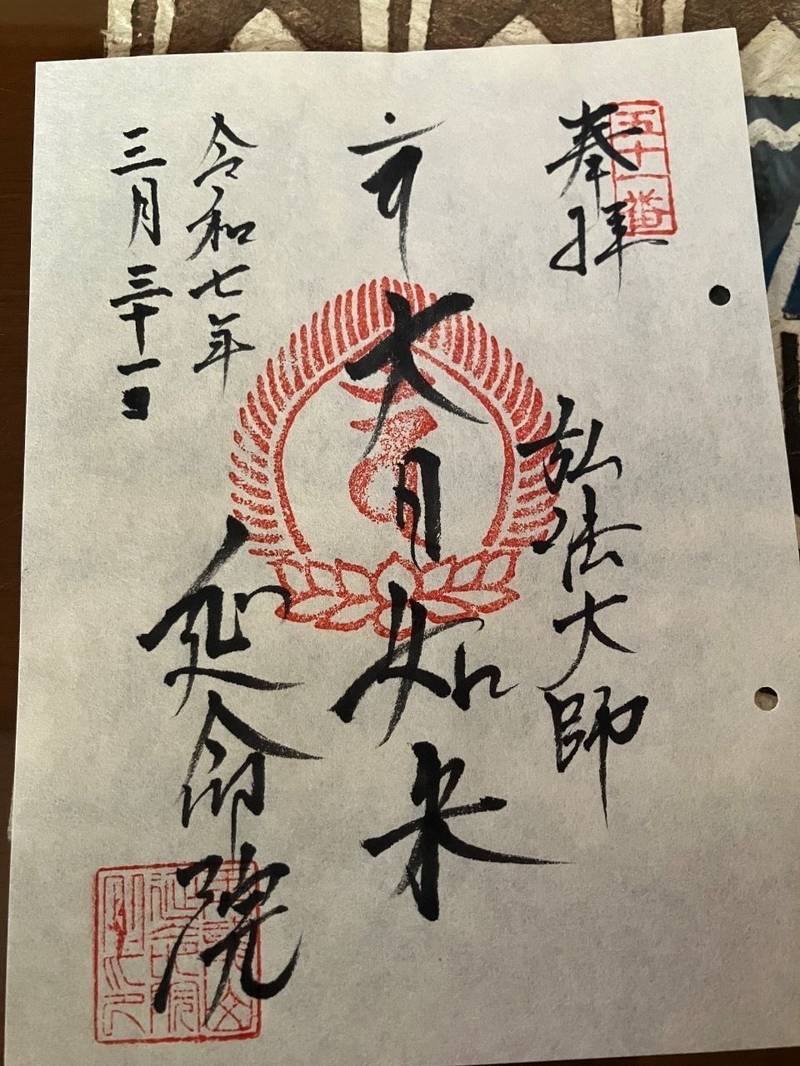 五十一番
奉拝
弘法大師
大日如来
延命院
令和七年
三月三十一日